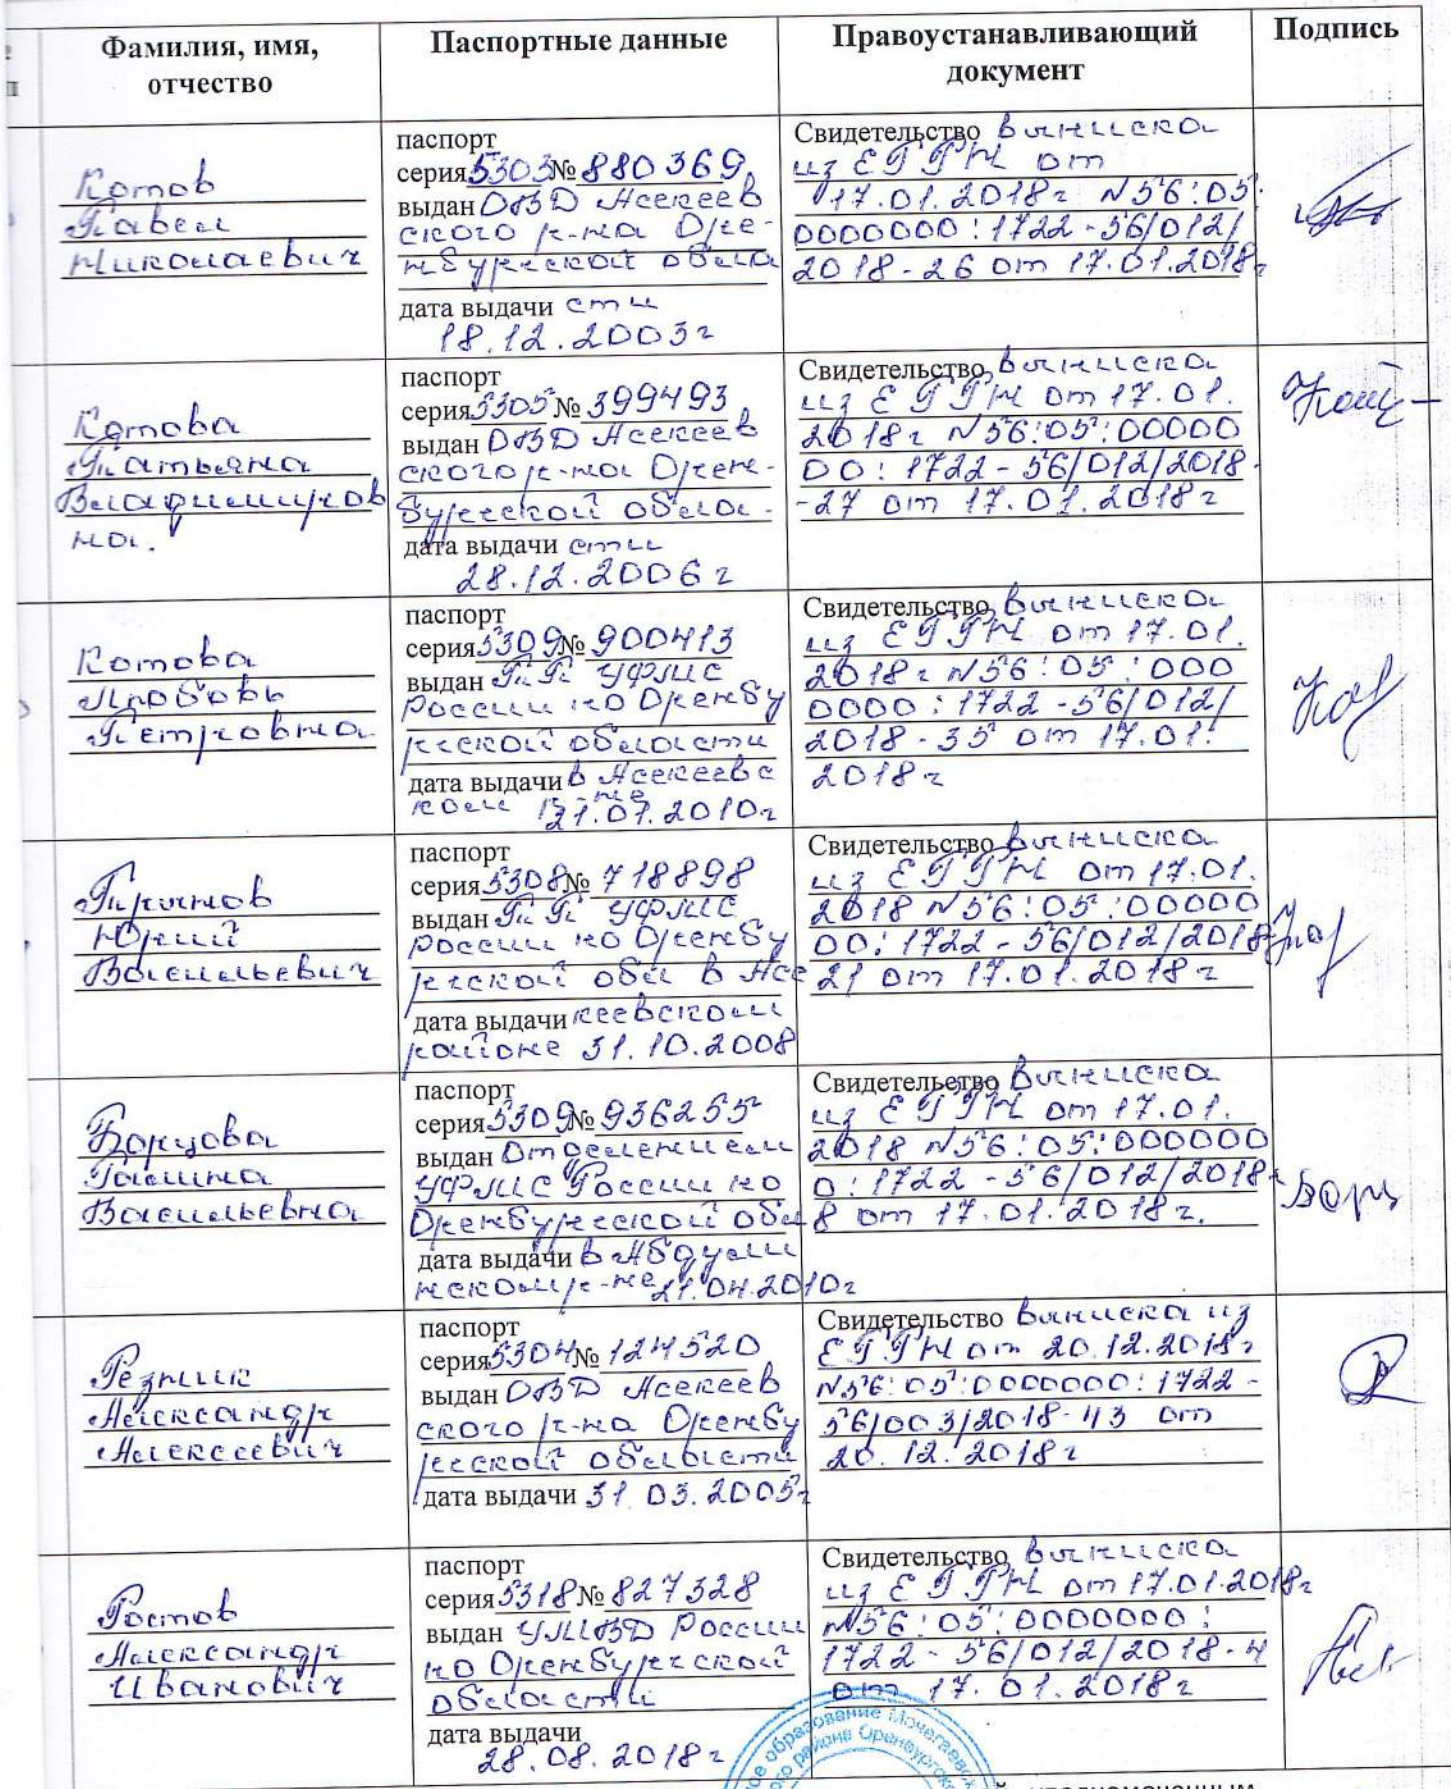 Фамилия, имя,
отчество
Паспортные данные
Правоустанавливающий
документ
Подпись
Котов
Павел
Николаевич
паспорт
серия 5303 № 880369
выдан ОВД Асекеев
ского р-на Оре-
нбургской обла
дата выдачи сти
18.12.2003г
Свидетельство выписка
из ЕГРН от
17.01.2018г N56:05:
0000000:1722-56/012/
2018-26 от 17.01.2018г
Котова
Татьяна
Владимиров
на.
паспорт
серия 5305 № 399493
выдан ОВД Асекеев
ского р-на Орен-
бургской обла-
дата выдачи сти
28.12.2006г
Свидетельство выписка
из ЕГРН от 17.01.
2018г N56:05:00000
00:1722-56/012/2018-
-27 от 17.01.2018г
Котова
Любовь
Петровна
паспорт
серия 5309 № 900413
выдан ТП УФМС
России по Оренбу
ргской области
дата выдачи в Асекеевс
ком р-не
21.07.2010г
Свидетельство выписка
из ЕГРН от 17.01.
2018г N56:05:000
0000:1722-56/012/
2018-35 от 17.01.
2018г
Юрий
Васильевич
паспорт
серия 5308 № 718898
выдан ТП УФМС
России по Оренбу
ргской обл в Асе
дата выдачи кеевском
районе 31.10.2008
Свидетельство выписка
из ЕГРН от 17.01.
2018 N56:05:00000
00:1722-56/012/2018-
21 от 17.01.2018г
Борцова
Галина
Васильевна
паспорт
серия 5309 № 936255
выдан Отделением
УФМС России по
Оренбургской обл
дата выдачи в Абдули
нском р-не 21.04.2010г
Свидетельство выписка
из ЕГРН от 17.01.
2018 N56:05:000000
0:1722-56/012/2018-
8 от 17.01.2018г.
Борц
Резник
Александр
Алексеевич
паспорт
серия 5304 № 124520
выдан ОВД Асекеев
ского р-на Оренбу
ргской области
дата выдачи 31.03.2005г
Свидетельство выписка из
ЕГРН от 20.12.2018г
N56:05:0000000:1722-
56/003/2018-43 от
20.12.2018г
Ростов
Александр
Иванович
паспорт
серия 5318 № 827328
выдан УМВД России
по Оренбургской
области
дата выдачи
28.08.2018г
Свидетельство выписка
из ЕГРН от 17.01.2018г
N56:05:0000000:
1722-56/012/2018-4
от 17.01.2018г